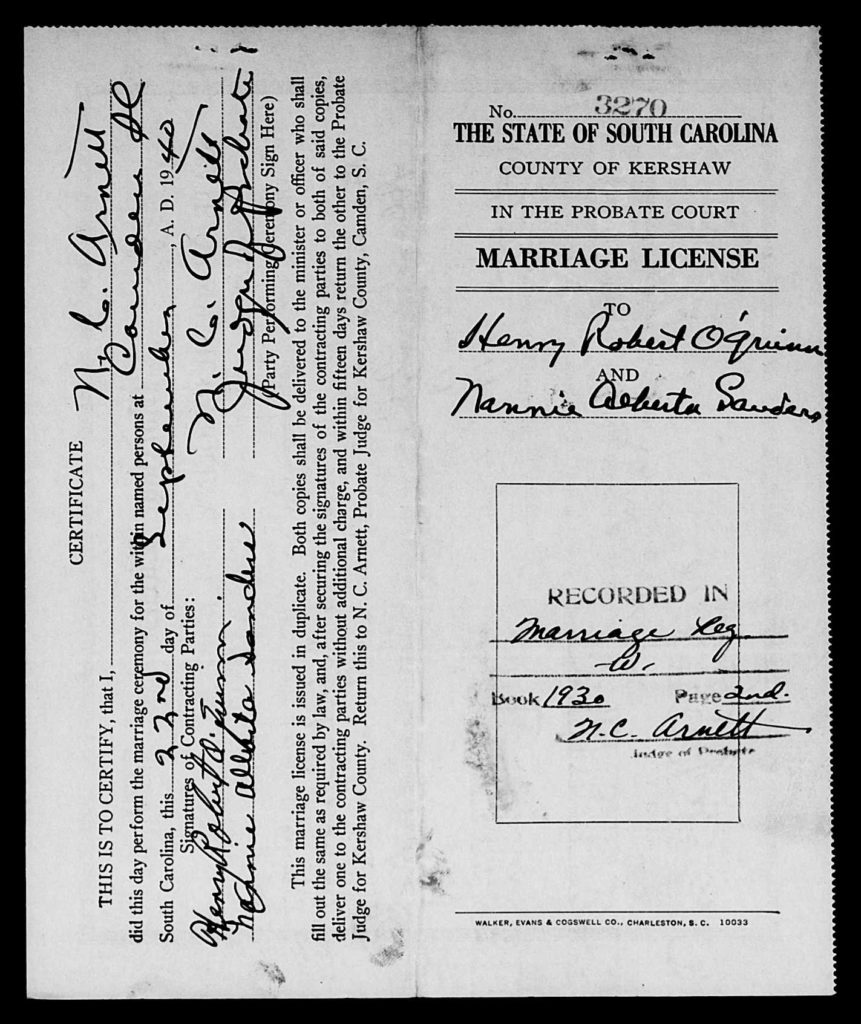 CERTIFICATE
THIS IS TO CERTIFY, that I, N. C. Arnett
did this day perform the marriage ceremony for the within named persons at Camden SC
South Carolina, this 22nd day of September, A. D. 1940
Signatures of Contracting Parties:
Henry Robert O'Quinn N. C. Arnett
Nannie Alberta Sanders Judge of Probate
(Party Performing Ceremony Sign Here)
This marriage license is issued in duplicate. Both copies shall be delivered to the minister or officer who shall
fill out the same as required by law, and, after securing the signatures of the contracting parties to both of said copies,
deliver one to the contracting parties without additional charge, and within fifteen days return the other to the Probate
Judge for Kershaw County. Return this to N. C. Arnett, Probate Judge for Kershaw County, Camden, S. C.
No. 3270
THE STATE OF SOUTH CAROLINA
COUNTY OF KERSHAW
IN THE PROBATE COURT
MARRIAGE LICENSE
TO
Henry Robert O'Quinn
AND
Nannie Alberta Sanders
RECORDED IN
Marriage Reg.
W.
Book 1930 Page 2nd.
N. C. Arnett
Judge of Probate
WALKER, EVANS & COGSWELL CO., CHARLESTON, S. C. 10033